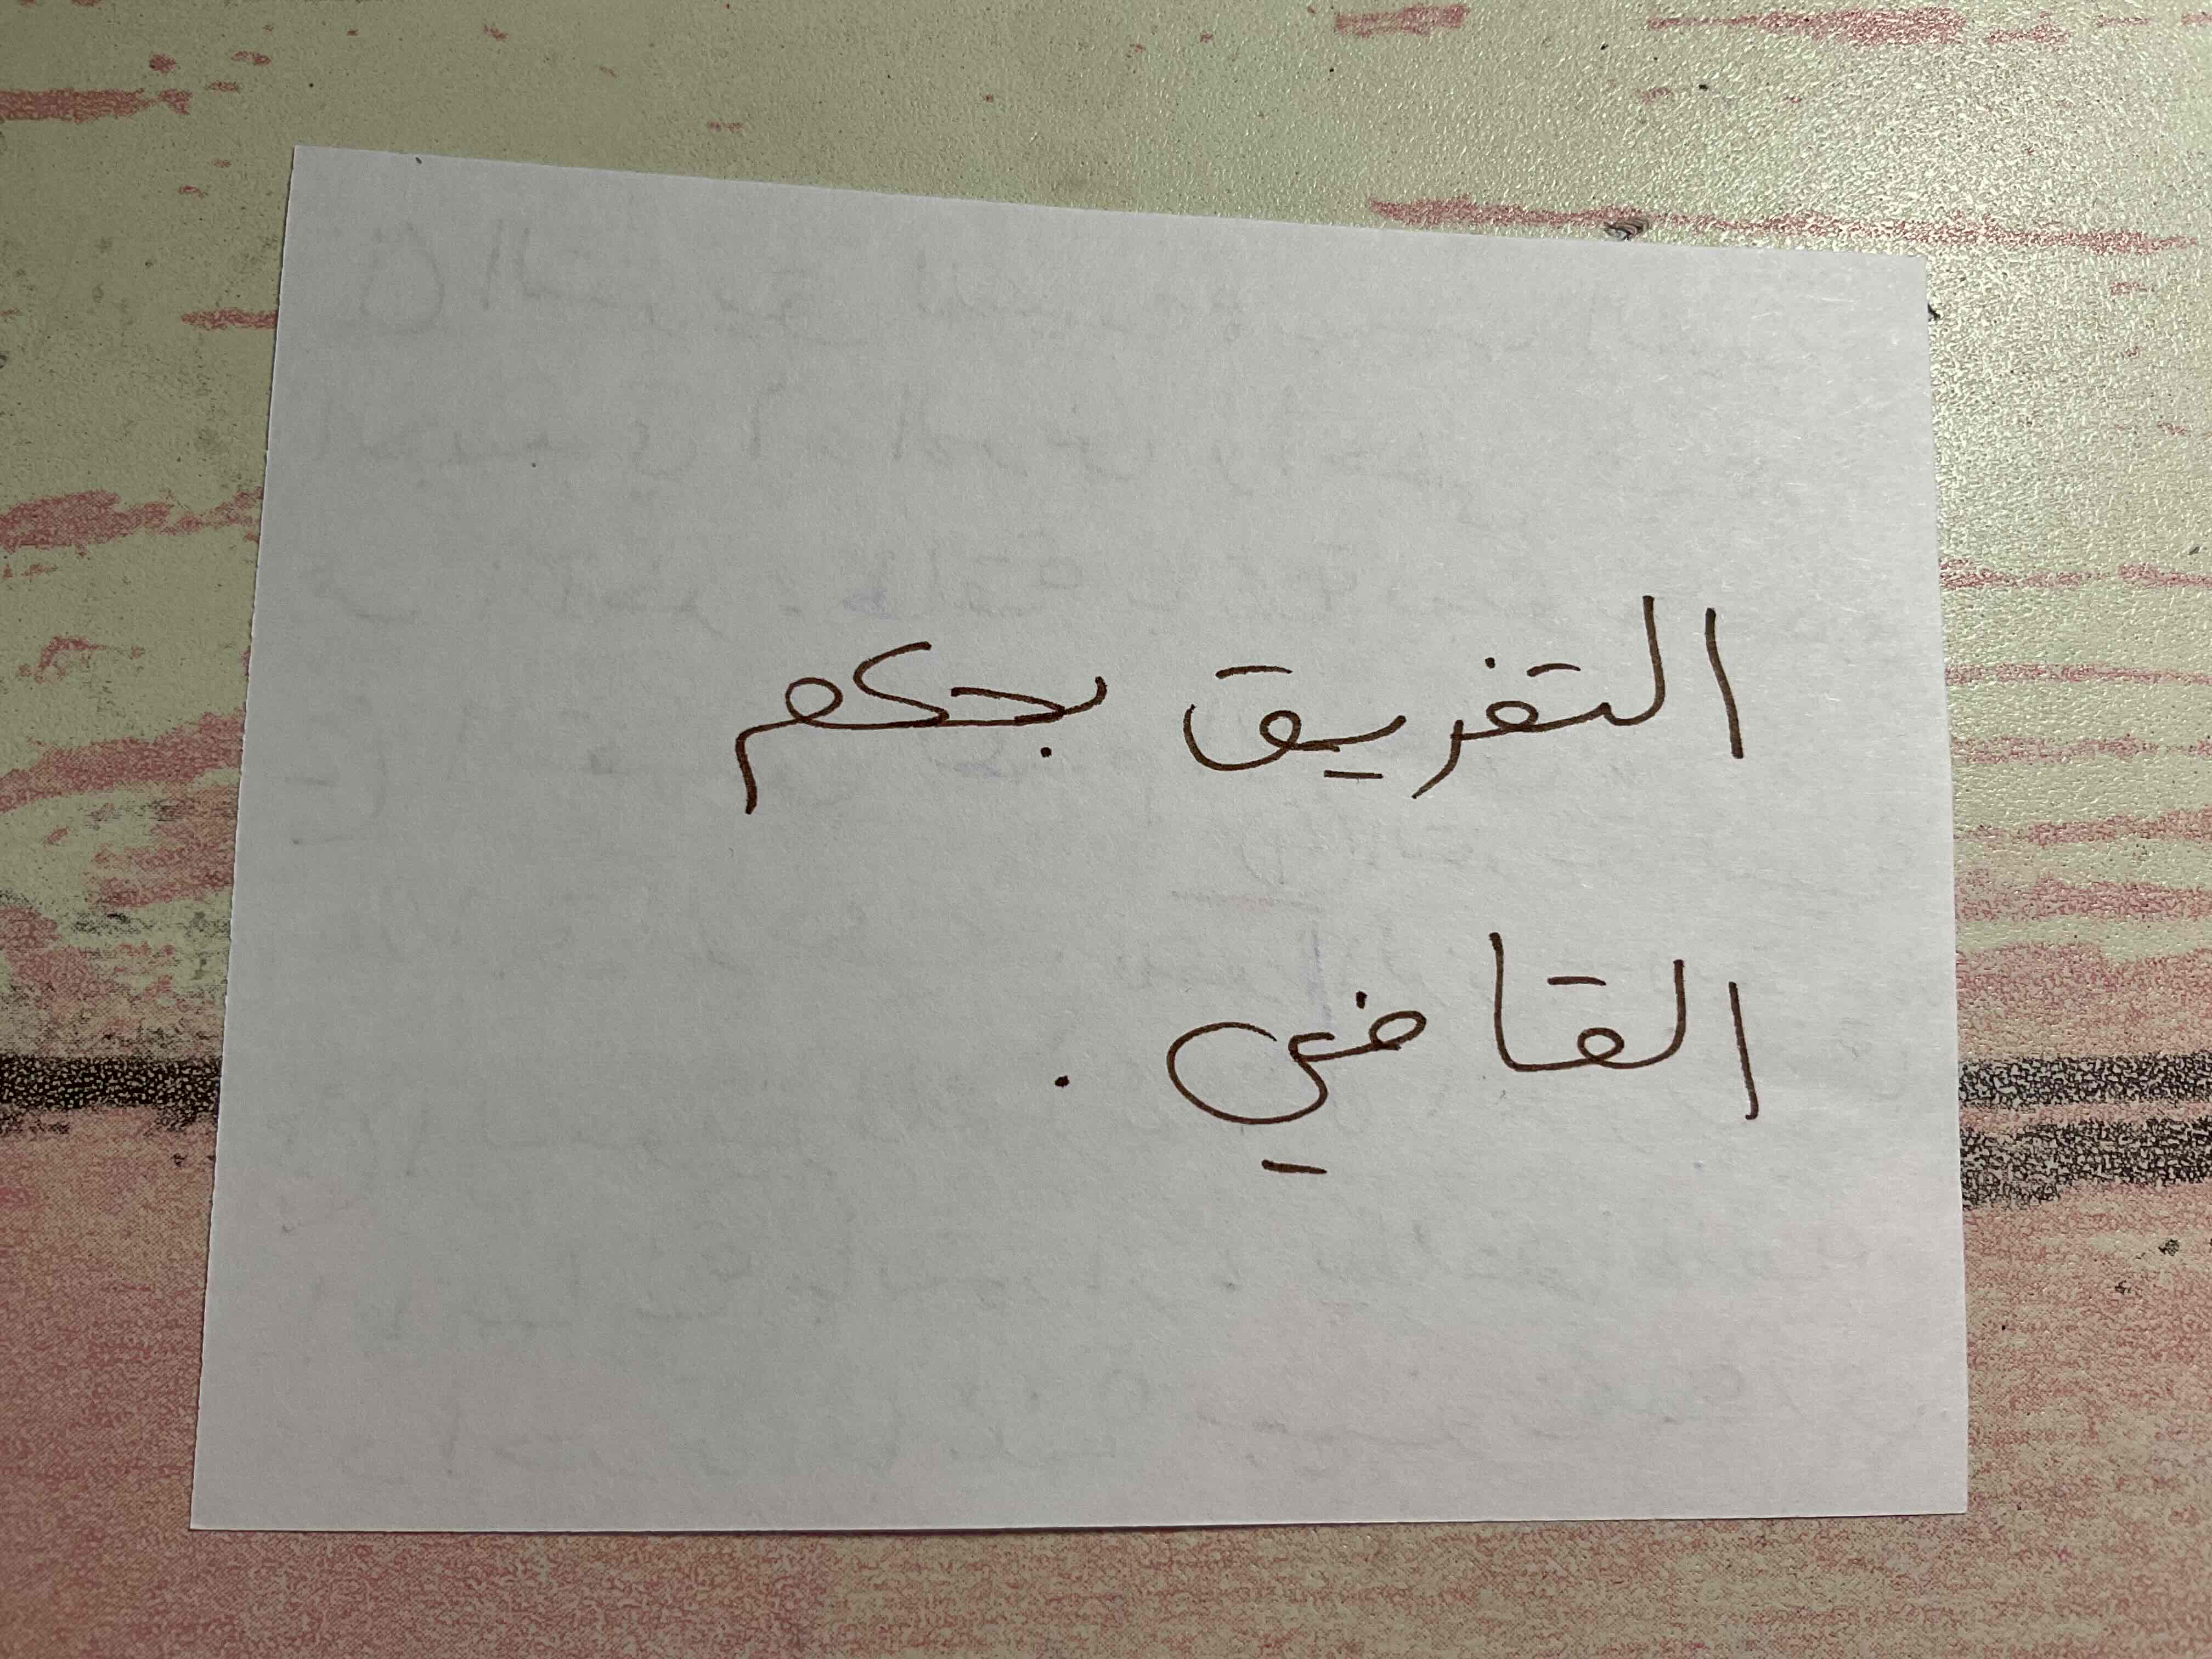 التفريق بحكم
القاضي .